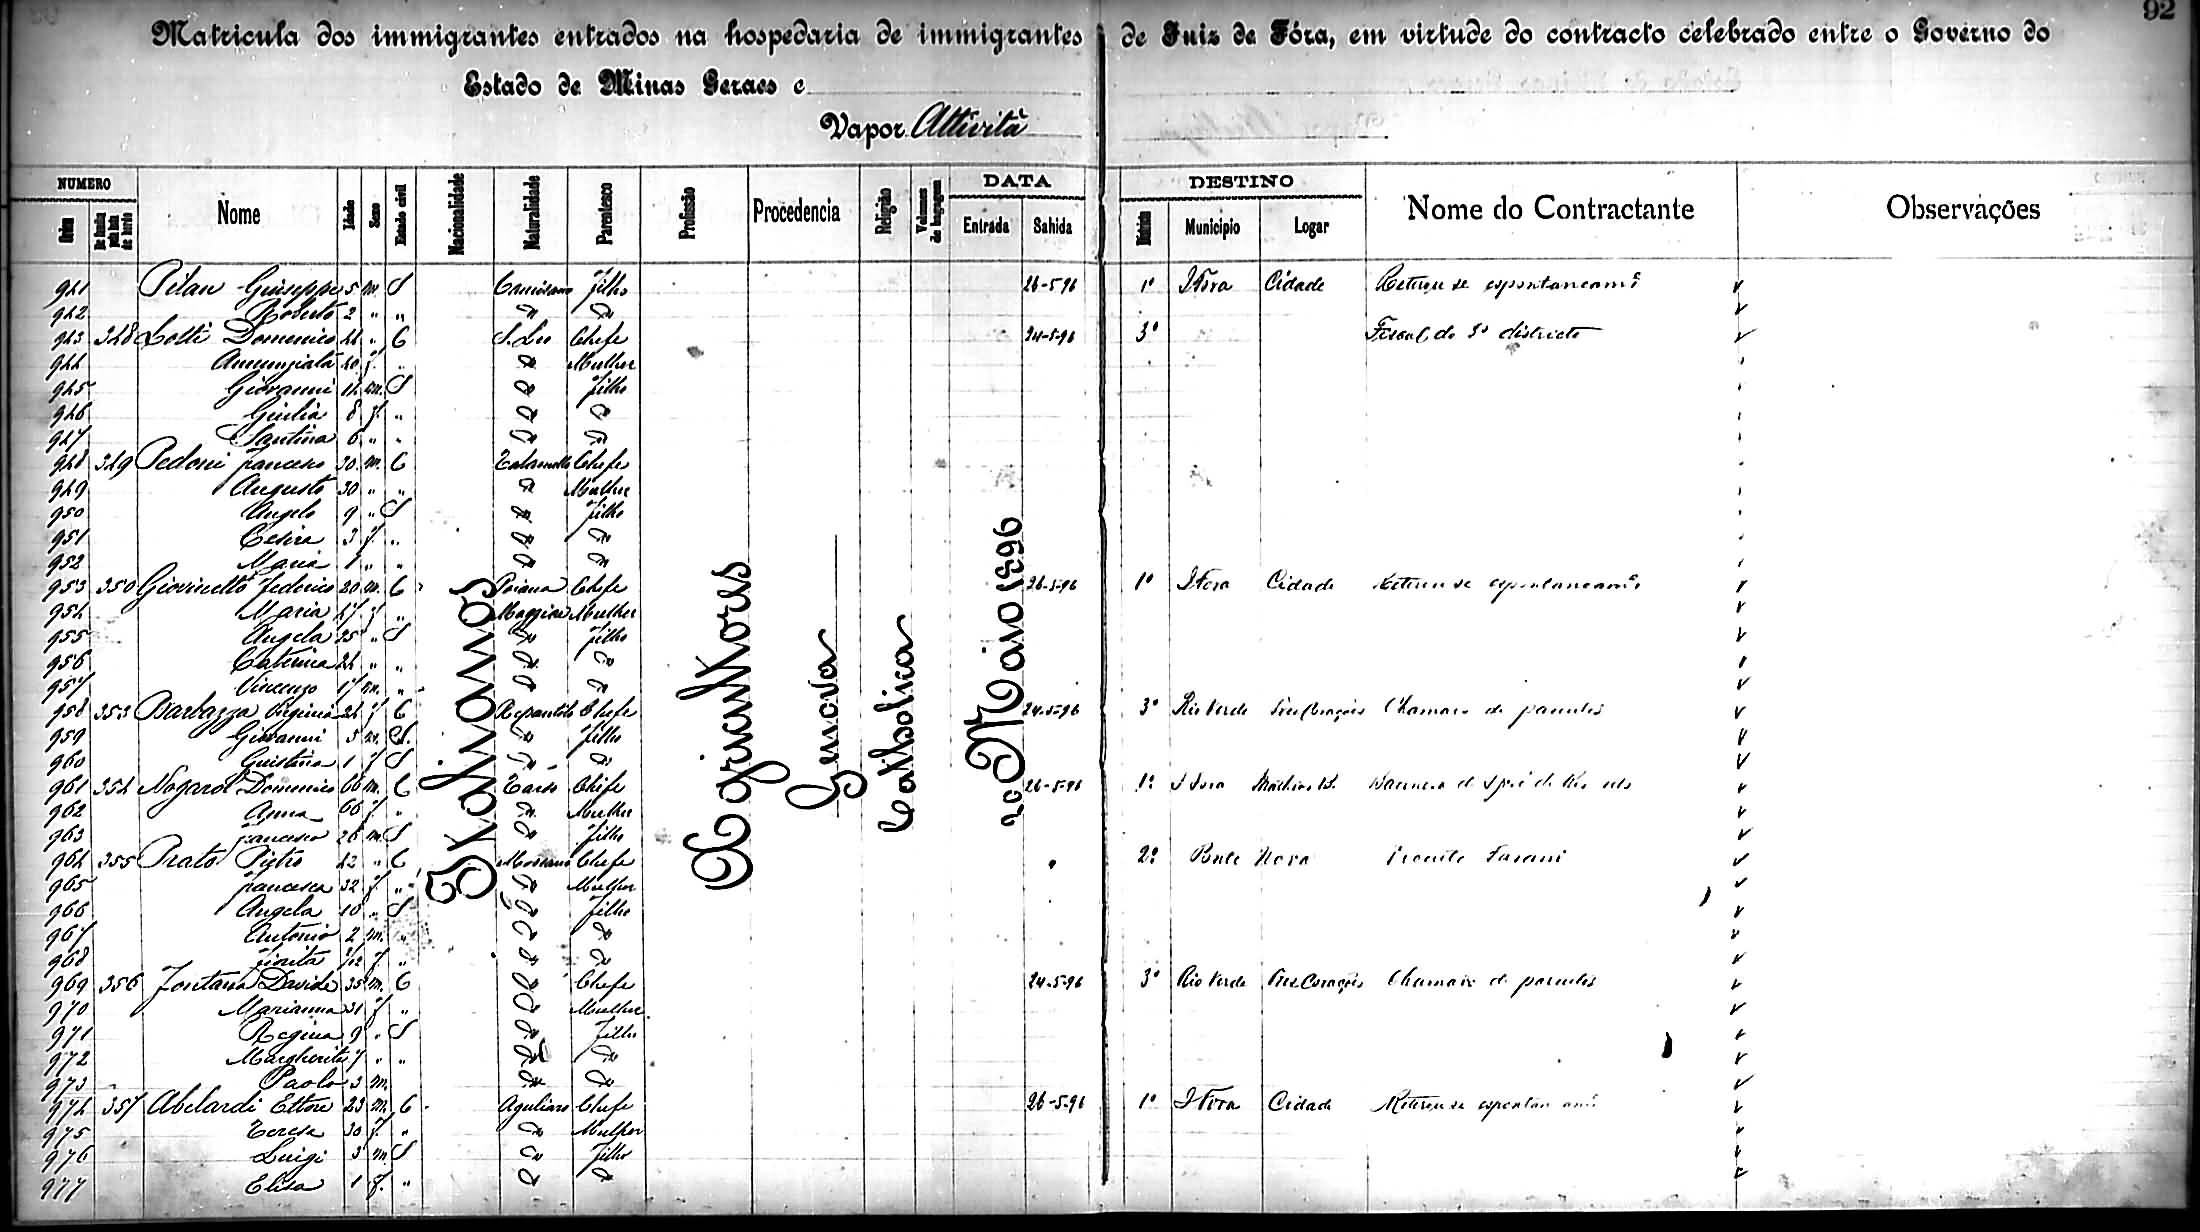 92
Matricula dos immigrantes entrados na hospedaria de immigrantes de Juiz de Fóra, em virtude do contracto celebrado entre o Governo do
Estado de Minas Geraes e
Vapor Attività
NUMERO Nome Idade Sexo Estado civil Nacionalidade Naturalidade Parentesco Profissão Procedencia Religião Volumes de bagagem DATA DESTINO Nome do Contractante Observações
Ordem Entrada Sahida Municipio Logar
Italianos Agricultores Genova Catholica 20 Maio 1896
941 Pilan Giuseppe 5 m. S Filho 26-5-96 1º J Fora Cidade Retirou se espontaneamᵉ
942 Roberto 2 " " D
943 348 Lotti Domenico 44 " C S. Leo Chefe 24-5-96 3º Fiscal do 3º districto
944 Annunziata 40 f. " D Mulher
945 Giovanni 14 m. S D Filho
946 Giulia 8 f. " D D
947 Santina 6 " " D D
948 349 Pedoni Francesco 30 m. C Chefe
949 Augusto 30 " " D Mulher
950 Angelo 9 " S D Filho
951 Cesira 3 f. " D D
952 Maria 1 " " D D
953 350 Federico 20 m. C Poiana Chefe 26-5-96 1º J Fora Cidade Retirou se espontaneamᵉ
954 Maria 47 f " Maggiore Mulher
955 Angela 25 " S D Filho
956 Caterina 24 " " D D
957 Vincenzo 17 m. " D D
958 353 Barbazza Virginia 24 f C Chefe 24-5-96 3º Rio Verde Tres Corações Chamado de parentes
959 Giovanni 5 m. S. D Filho
960 Giustina 1 f S D D
961 354 Nogarol Domenico 66 m. C Chefe 26-5-96 1º J Fora
962 Anna 66 f. " D Mulher
963 Francesco 26 m. S D Filho
964 355 Prato Pietro 42 " C Chefe " 2º Ponte Nova
965 Francesca 32 f. " D Mulher
966 Angela 10 " S D Filho
967 Antonio 2 m. " D D
968 f. " D D
969 356 Fontana Davide 35 m. C D Chefe 24-5-96 3º Rio Verde Tres Corações Chamado de parentes
970 Marianna 31 f " D Mulher
971 Regina 9 " S D Filho
972 Margherita 7 " " D D
973 Paolo 3 m. D D
974 357 Abelardi Ettore 23 m. C Chefe 26-5-96 1º J Fora Cidade Retirou se
975 Teresa 30 f. " D Mulher
976 Luigi 3 m. S D Filho
977 Elisa 1 f. " D D